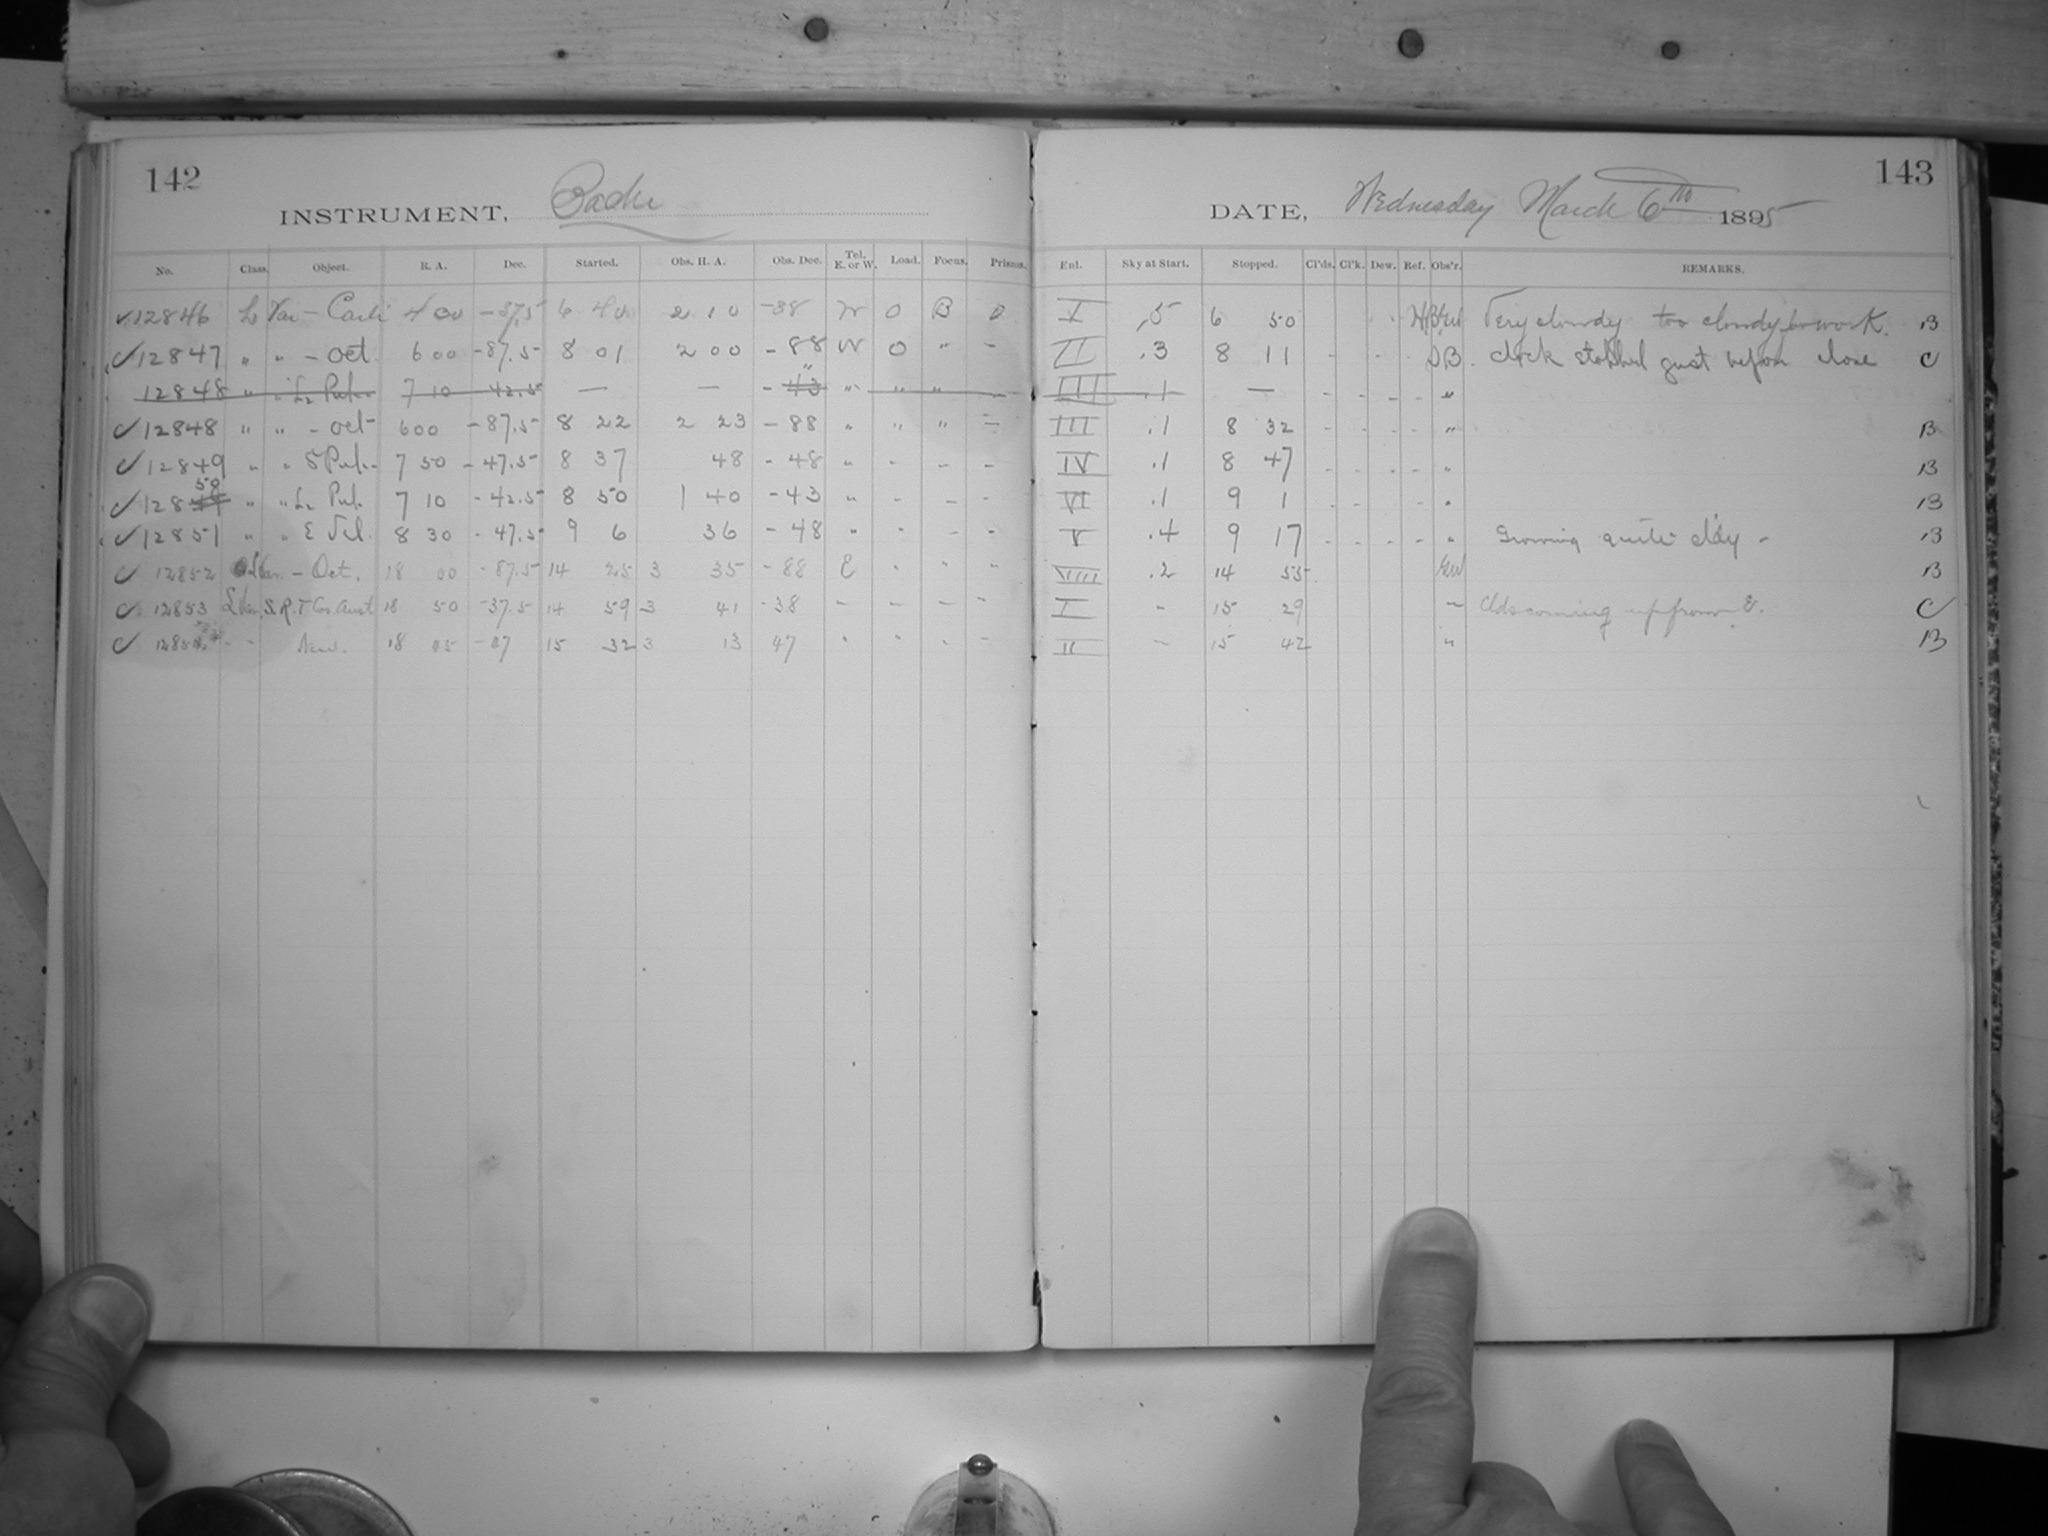 142
INSTRUMENT, Bache
No. Class. Object. R. A. Dec. Started. Obs. H. A. Obs. Dec. Tel. E. or W. Load. Focus. Prisms.
12846 L Var - 4 00 -87.5 6 40 2 10 -88 W O B 0
12847 " " - Oct. 6 00 -87.5 8 01 2 00 -88 W O " -
12848 " " L2 Pup. 7 10 -42.5 — — -43 " " " -
12848 " " - Oct 6 00 -87.5 8 22 2 23 -88 " " " =
12849 " " S Pup. 7 50 -47.5 8 37 48 -48 " - - -
12850 " " L2 Pup. 7 10 -42.5 8 50 1 40 -43 " - - -
12851 " " E Vel. 8 30 -47.5 9 6 36 -48 " - - -
12852 - Oct. 18 00 -87.5 14 25 3 35 -88 E " " -
12853 L Var. S. R. T Cor. Aust 18 50 -37.5 14 59 3 41 -38 - - - -
12854 - - 18 05 -47 15 32 3 13 47 " " " -
143
DATE, Wednesday March 6th 1895
Enl. Sky at Start. Stopped. Cl'ds. Cl'k. Dew. Ref. Obs'r. REMARKS.
I .5 6 50 Very cloudy too cloudy to work. B
II .3 8 11 - - - - DB. clock stopped just before close C
III .1 — - - - - "
III .1 8 32 - - - - " B
IV .1 8 47 - - - - " B
VI .1 9 1 - - - - " B
V .4 9 17 - - - - " Growing quite cl'dy - B
VIIII .2 14 55 B
I " 15 29 " Clds coming up from E. C
II - 15 42 " B